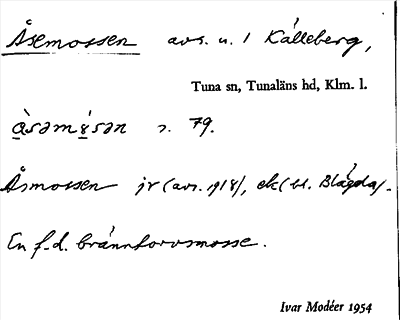 Åsemossen avs. u. 1 Källeberg,
Tuna sn, Tunaläns hd, Klm. l.
s. 79.
Åsmossen jr (avs. 1918), ek (bl. Blägda).
En f.d. bränntorvsmosse.
Ivar Modéer 1954